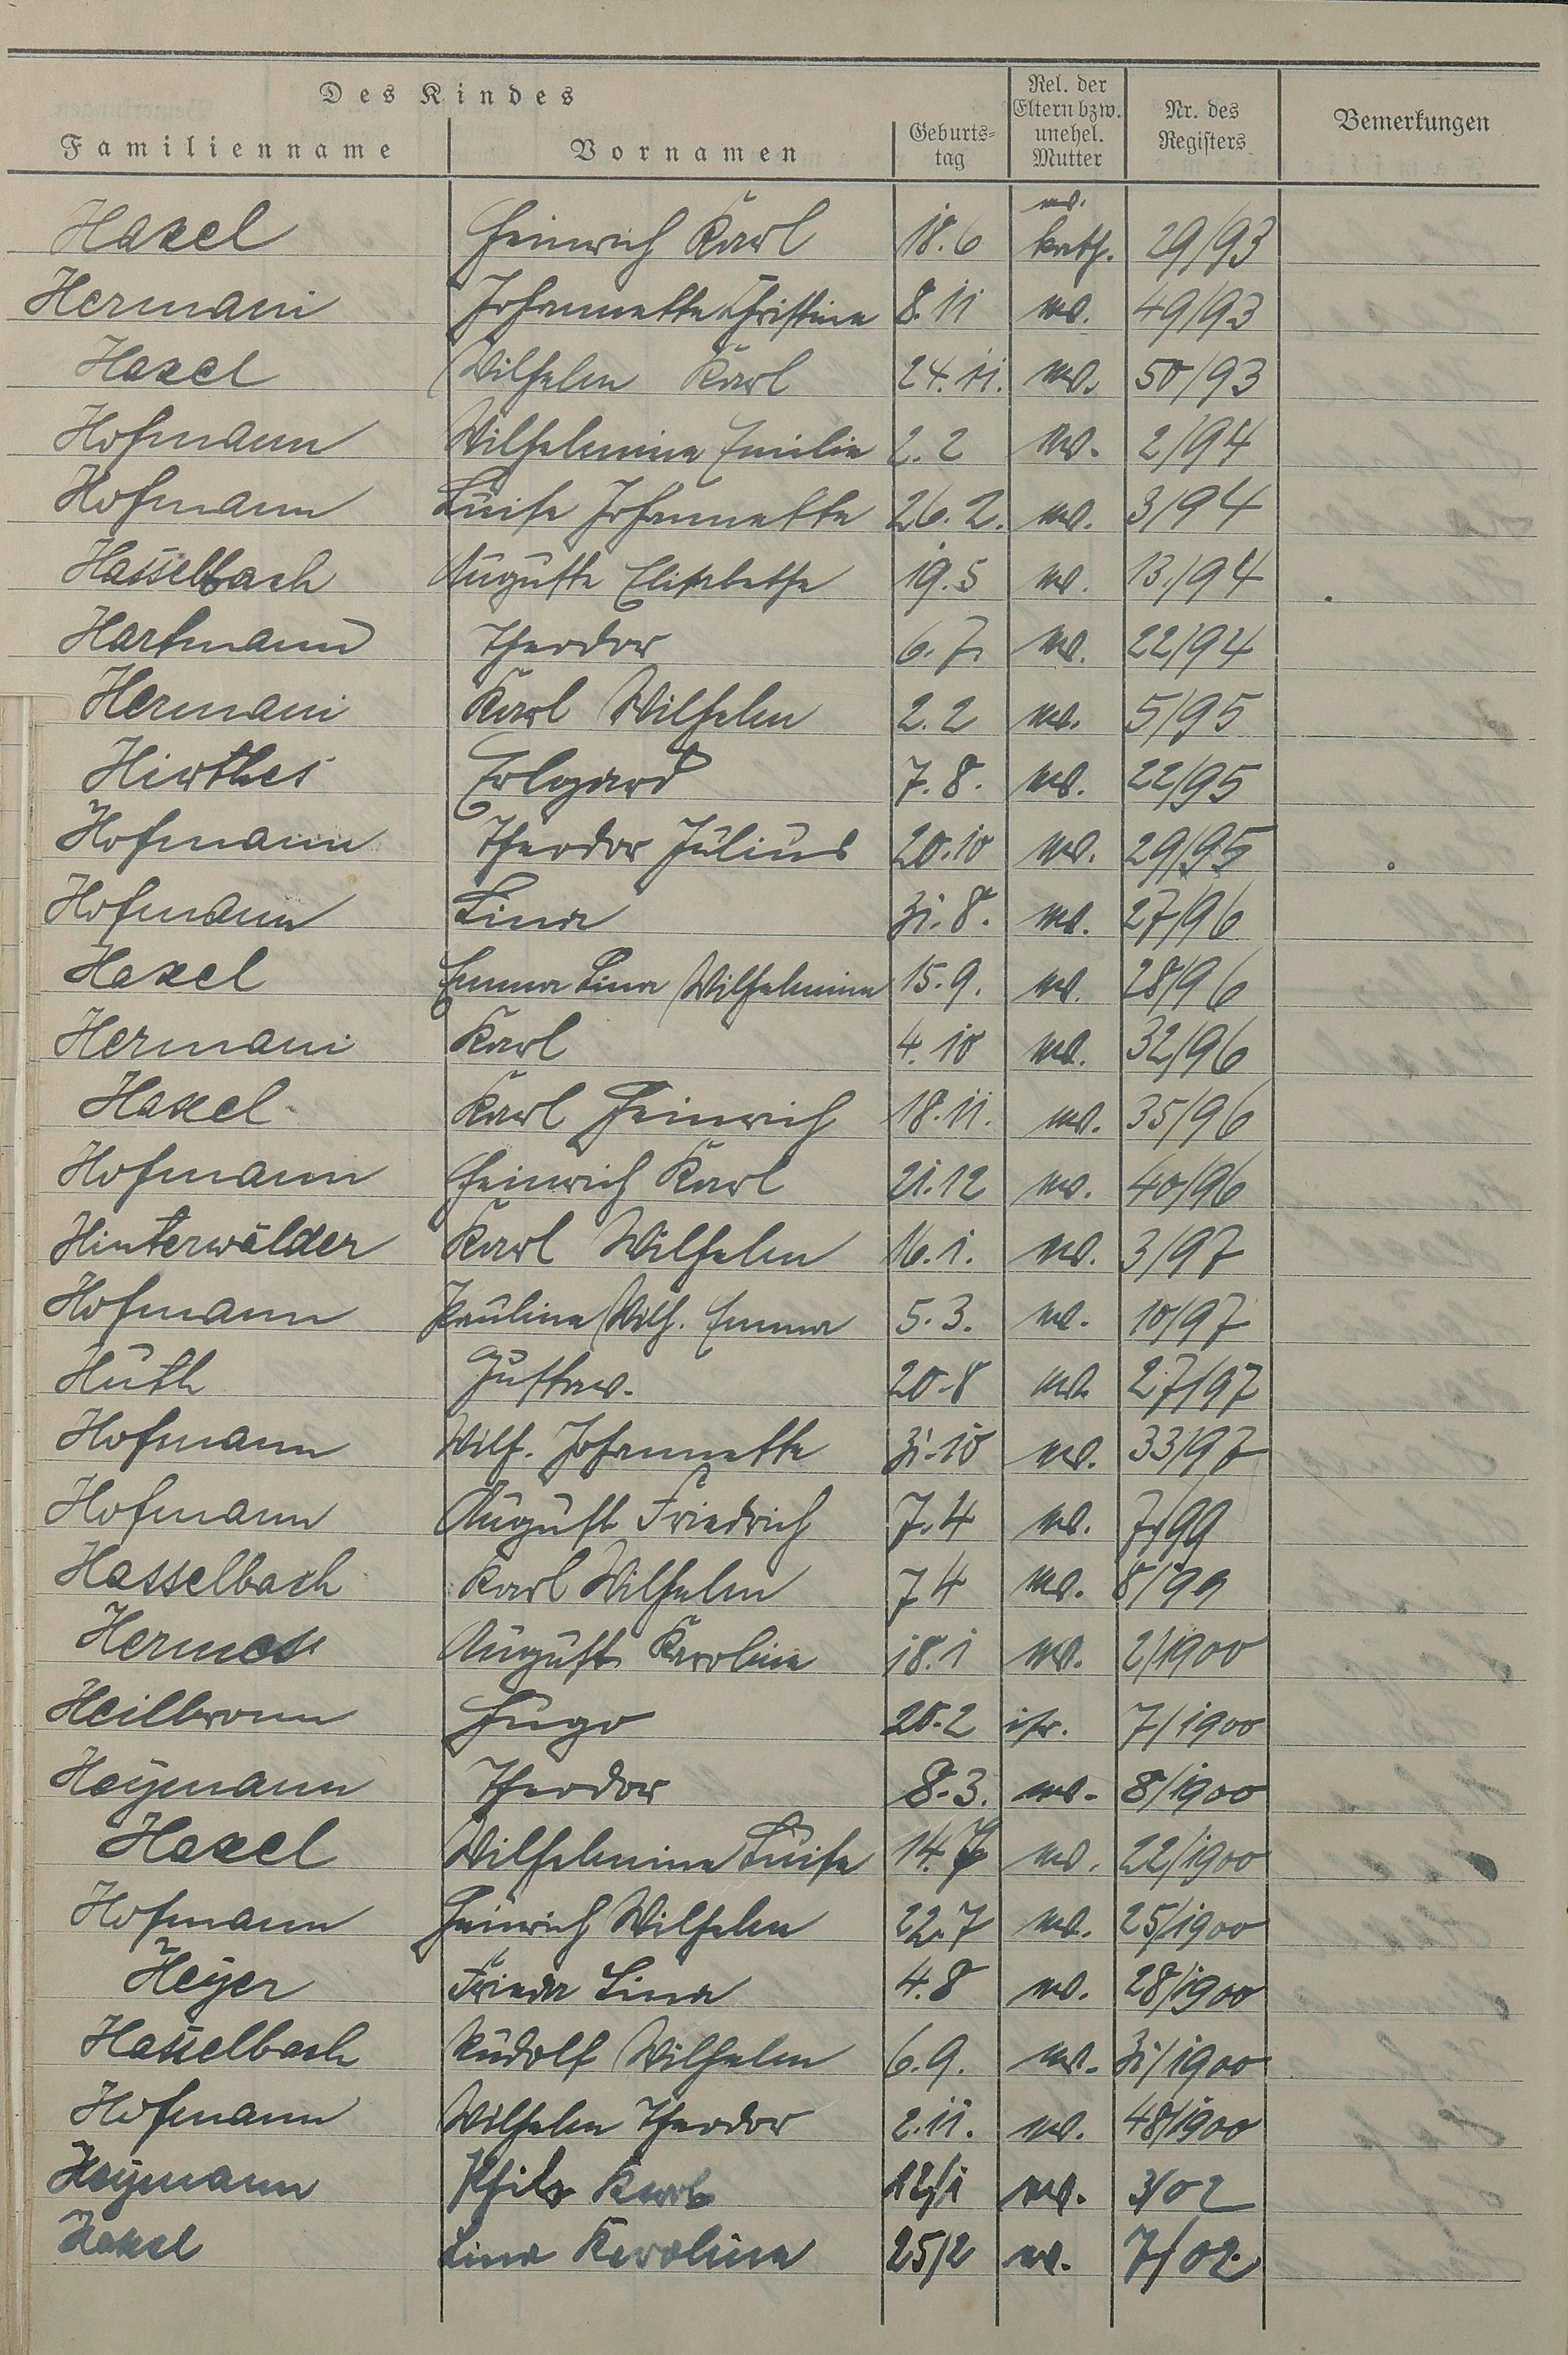 Des Kindes
Familienname Vornamen Geburts-tag Rel. der Eltern bzw. unehel. Mutter Nr. des Registers Bemerkungen
ev.
Hasel Heinrich Karl 18.6 kath. 29/93
Hermani Johannette Christine 8.11 ev. 49/93
Hasel Wilhelm Karl 24.11. ev. 50/93
Hofmann Wilhelmine Emilie 2.2 ev. 2/94
Hofmann Luise Johannette 26.2. ev. 3/94
Hasselbach Auguste Elisabethe 19.5 ev. 13/94
Hartmann Theodor 6.7. ev. 22/94
Hermani Karl Wilhelm 2.2 ev. 5/95
Hirthes 7.8. ev. 22/95
Hofmann Theodor Julius 20.10 ev. 29/95
Hofmann Lina 31.8. ev. 27/96
Hasel Emma Lina Wilhelmine 15.9. ev. 28/96
Hermani Karl 4.10 ev. 32/96
Hasel Karl Heinrich 18.11. ev. 35/96
Hofmann Heinrich Karl 21.12 ev. 40/96
Hinterwälder Karl Wilhelm 16.1. ev. 3/97
Hofmann Pauline Wilh. Emma 5.3. ev. 10/97
Huth Gustav. 20.8 ev. 27/97
Hofmann Wilh. Johannette 31.10 ev. 33/97
Hofmann August Friedrich 7.4 ev. 7/99
Hasselbach Karl Wilhelm 7 4 ev. 8/99
Auguste Karoline 18.1 ev. 2/1900
Heilbronn Hugo 20.2 isr. 7/1900
Heymann Theodor 8.3. ev. 8/1900
Hasel Wilhelmine Luise 14.7 ev. 22/1900
Hofmann Heinrich Wilhelm 22.7 ev. 25/1900
Heyer Frieda Lina 4.8 ev. 28/1900
Hasselbach Rudolf Wilhelm 6.9. ev. 31/1900
Hofmann Wilhelm Theodor 2.11. ev. 48/1900
Heymann Karl 12/1 ev. 3/02
Hasel Lina Karoline 25/2 ev. 7/02